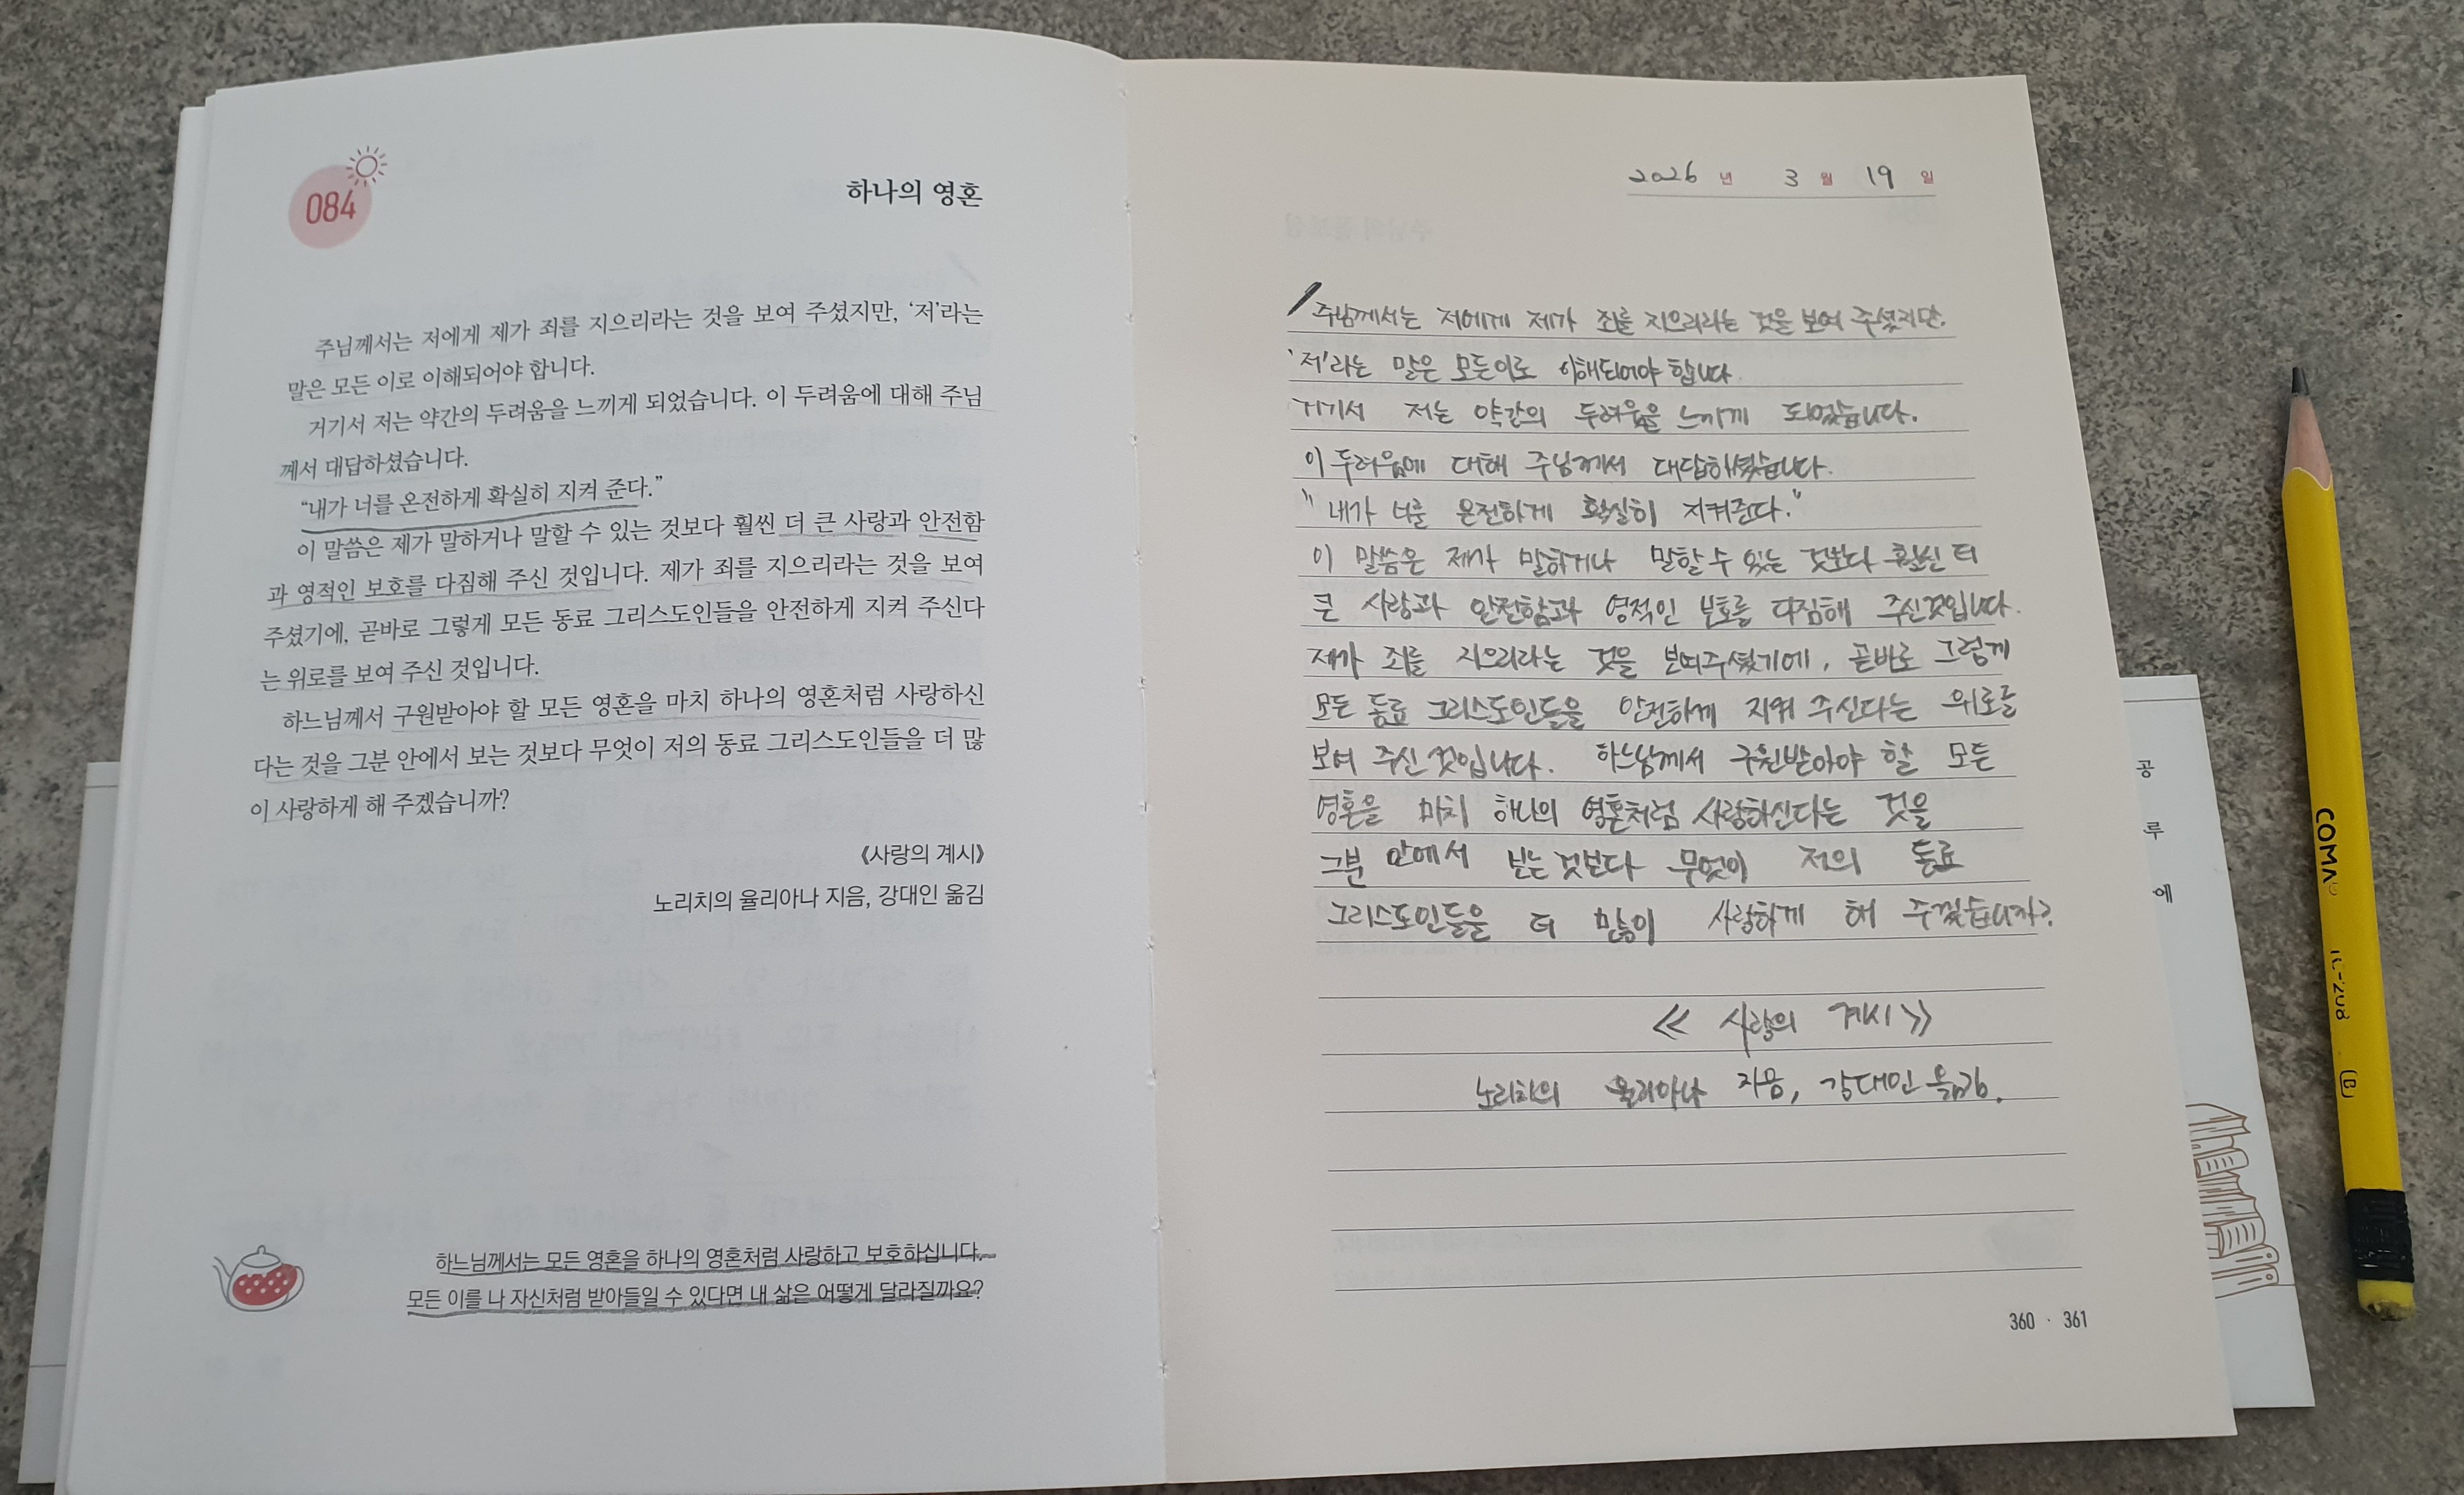 084
하나의 영혼
주님께서는 저에게 제가 죄를 지으리라는 것을 보여 주셨지만, ‘저’라는
말은 모든 이로 이해되어야 합니다.
거기서 저는 약간의 두려움을 느끼게 되었습니다. 이 두려움에 대해 주님
께서 대답하셨습니다.
“내가 너를 온전하게 확실히 지켜 준다.”
이 말씀은 제가 말하거나 말할 수 있는 것보다 훨씬 더 큰 사랑과 안전함
과 영적인 보호를 다짐해 주신 것입니다. 제가 죄를 지으리라는 것을 보여
주셨기에, 곧바로 그렇게 모든 동료 그리스도인들을 안전하게 지켜 주신다
는 위로를 보여 주신 것입니다.
하느님께서 구원받아야 할 모든 영혼을 마치 하나의 영혼처럼 사랑하신
다는 것을 그분 안에서 보는 것보다 무엇이 저의 동료 그리스도인들을 더 많
이 사랑하게 해 주겠습니까?
《사랑의 계시》
노리치의 율리아나 지음, 강대인 옮김
하느님께서는 모든 영혼을 하나의 영혼처럼 사랑하고 보호하십니다.
모든 이를 나 자신처럼 받아들일 수 있다면 내 삶은 어떻게 달라질까요?
2026 년 3 월 19 일
주님께서는 저에게 제가 죄를 지으리라는 것을 보여 주셨지만.
'저'라는 말은 모든이로 이해되어야 합니다.
거기서 저는 약간의 두려움을 느끼게 되었습니다.
이 두려움에 대해 주님께서 대답하셨습니다.
"내가 너를 온전하게 확실히 지켜준다."
이 말씀은 제가 말하거나 말할 수 있는 것보다 훨씬 더
큰 사랑과 안전함과 영적인 보호를 다짐해 주신것입니다.
제가 죄를 지으리라는 것을 보여주셨기에, 곧바로 그렇게
모든 동료 그리스도인들을 안전하게 지켜 주신다는 위로를
보여 주신 것입니다. 하느님께서 구원받아야 할 모든
영혼을 마치 하나의 영혼처럼 사랑하신다는 것을
그분 안에서 보는 것보다 무엇이 저의 동료
그리스도인들을 더 많이 사랑하게 해 주겠습니까?
《 사랑의 계시 》
노리치의 율리아나 지음, 강대인 옮김.
360 · 361
공
루
에
COMA
B